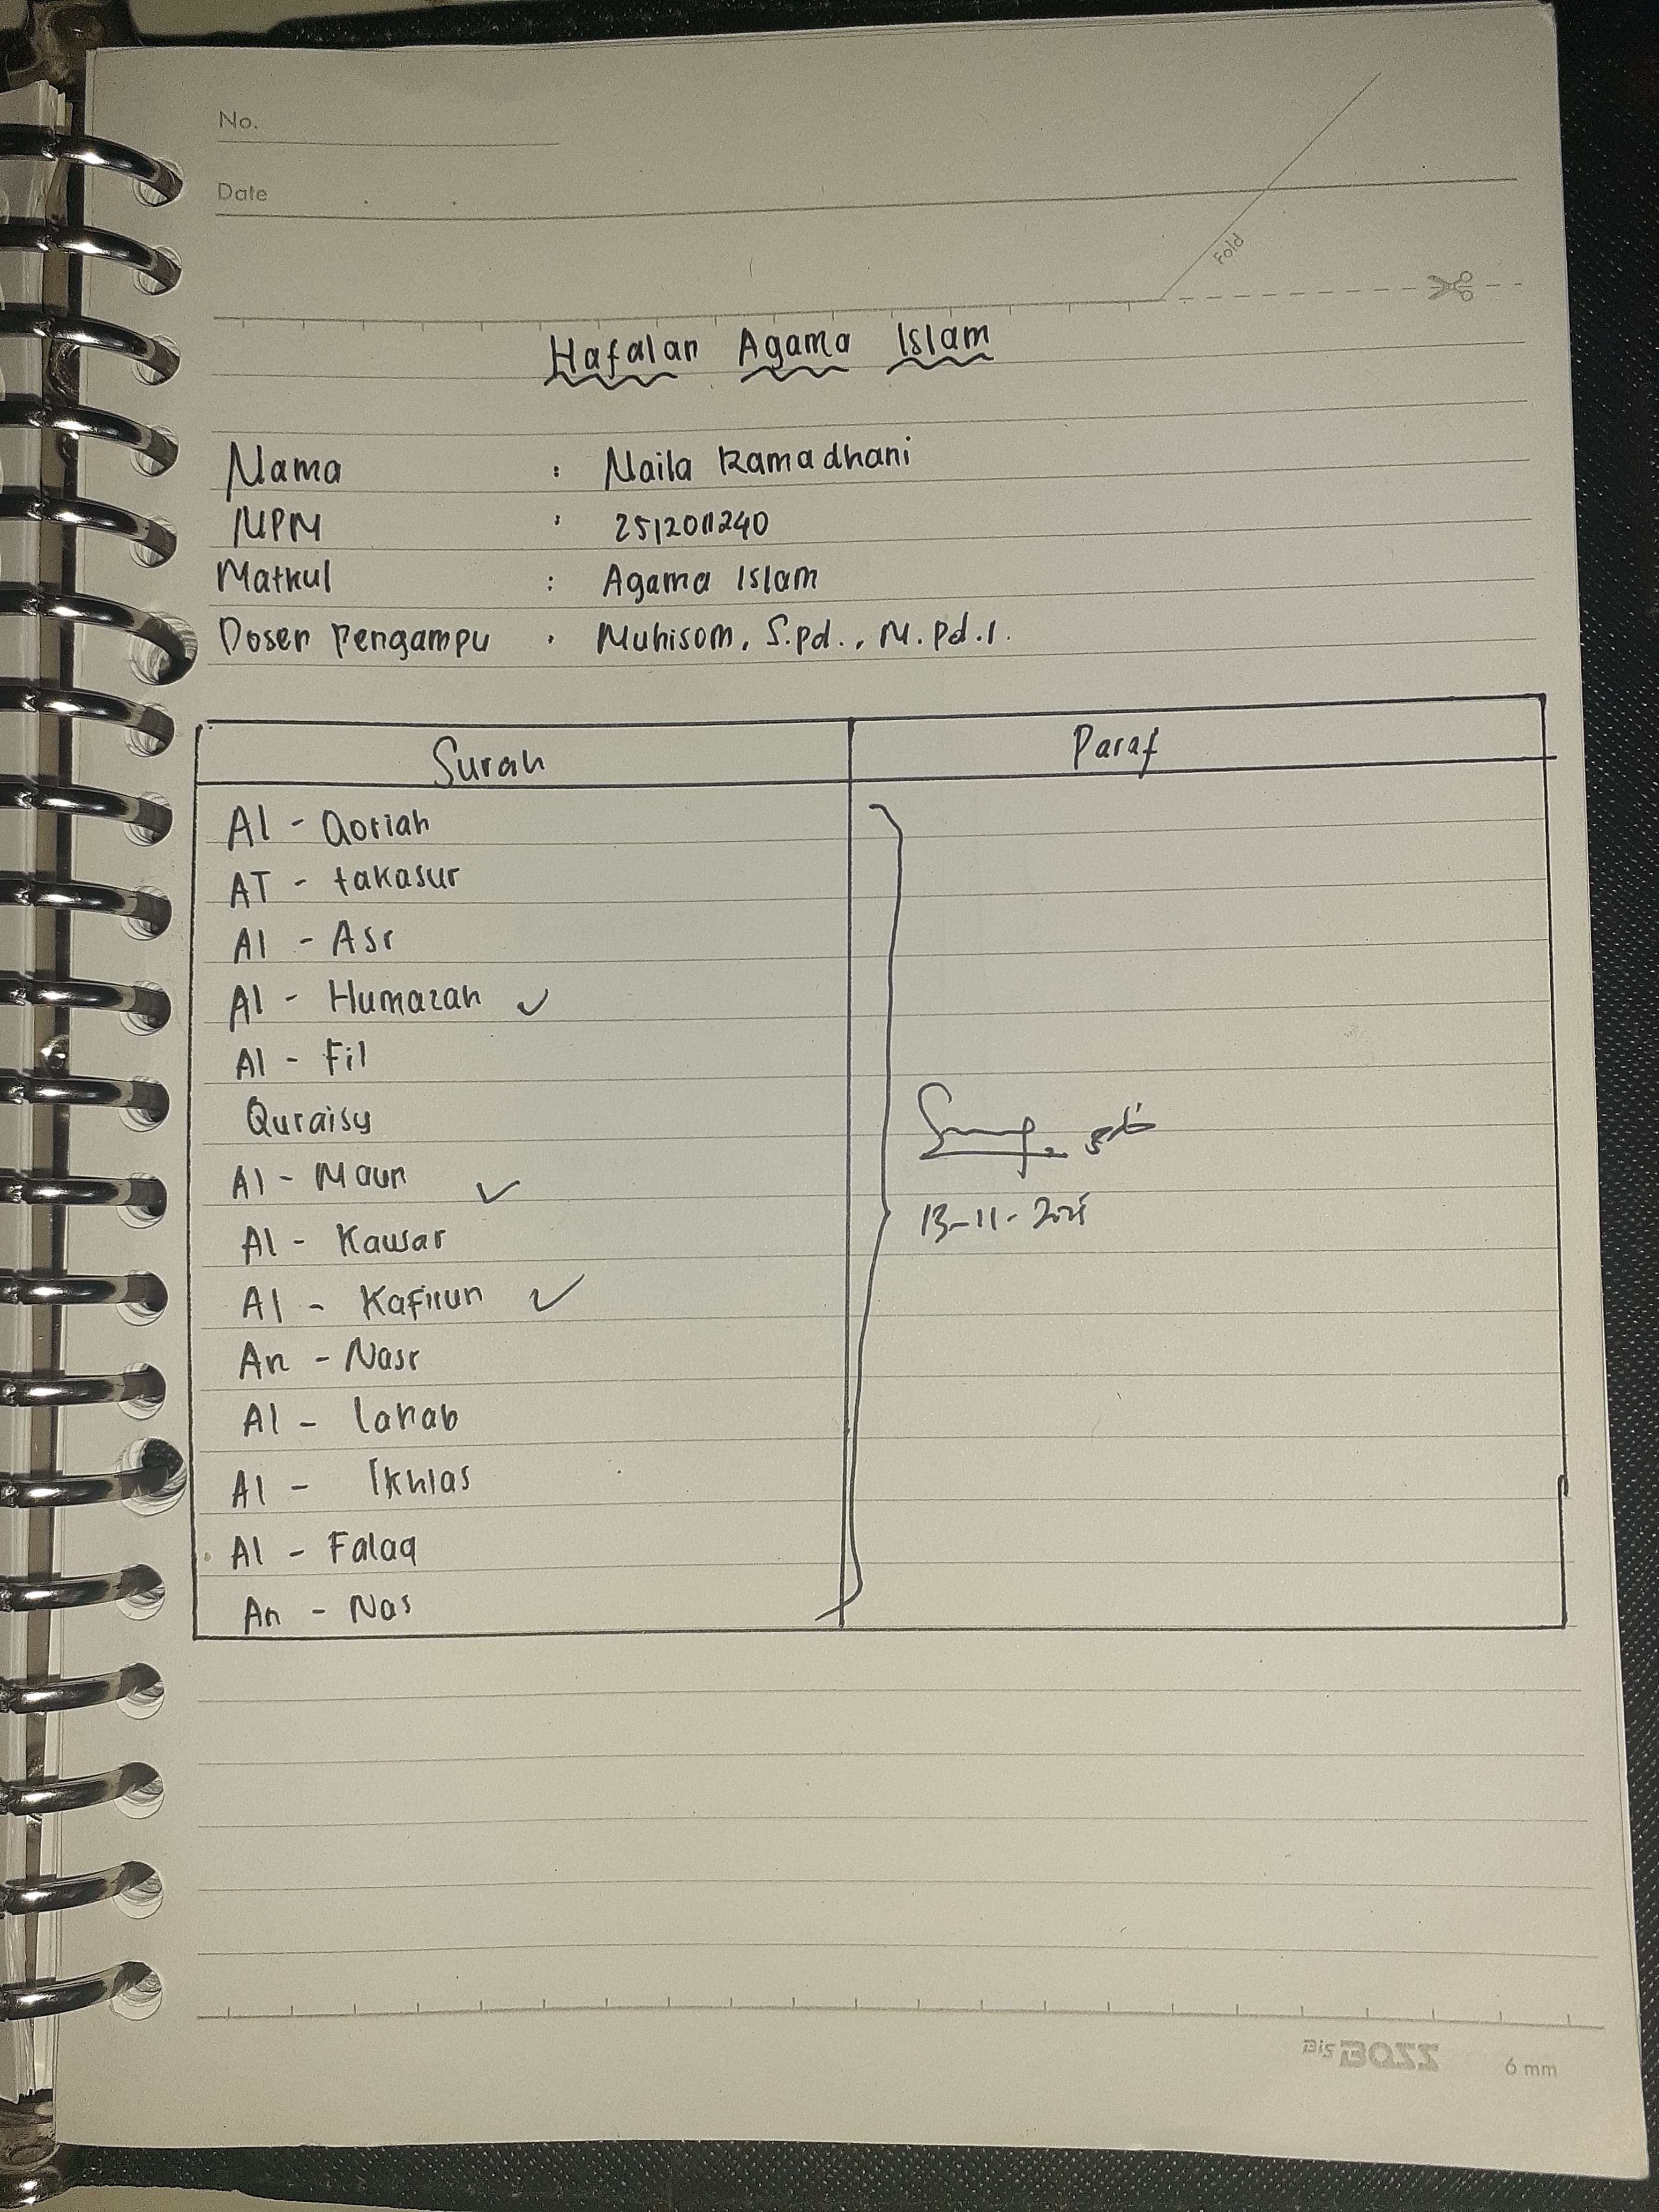 No.
Date
Fold
Hafalan Agama Islam
Nama : Naila Ramadhani
NPM : 2512011240
Matkul : Agama Islam
Dosen Pengampu : Muhisom, S.pd., M.pd.I.
Surah Paraf
Al - Qoriah
AT - takasur
Al - Asr
Al - Humazah ✓
Al - Fil
Quraisy
Al - Maun ✓
Al - Kawsar
13-11-2025
Al - Kafirun ✓
An - Nasr
Al - lahab
Al - Ikhlas
Al - Falaq
An - Nas
Big BOSS 6 mm